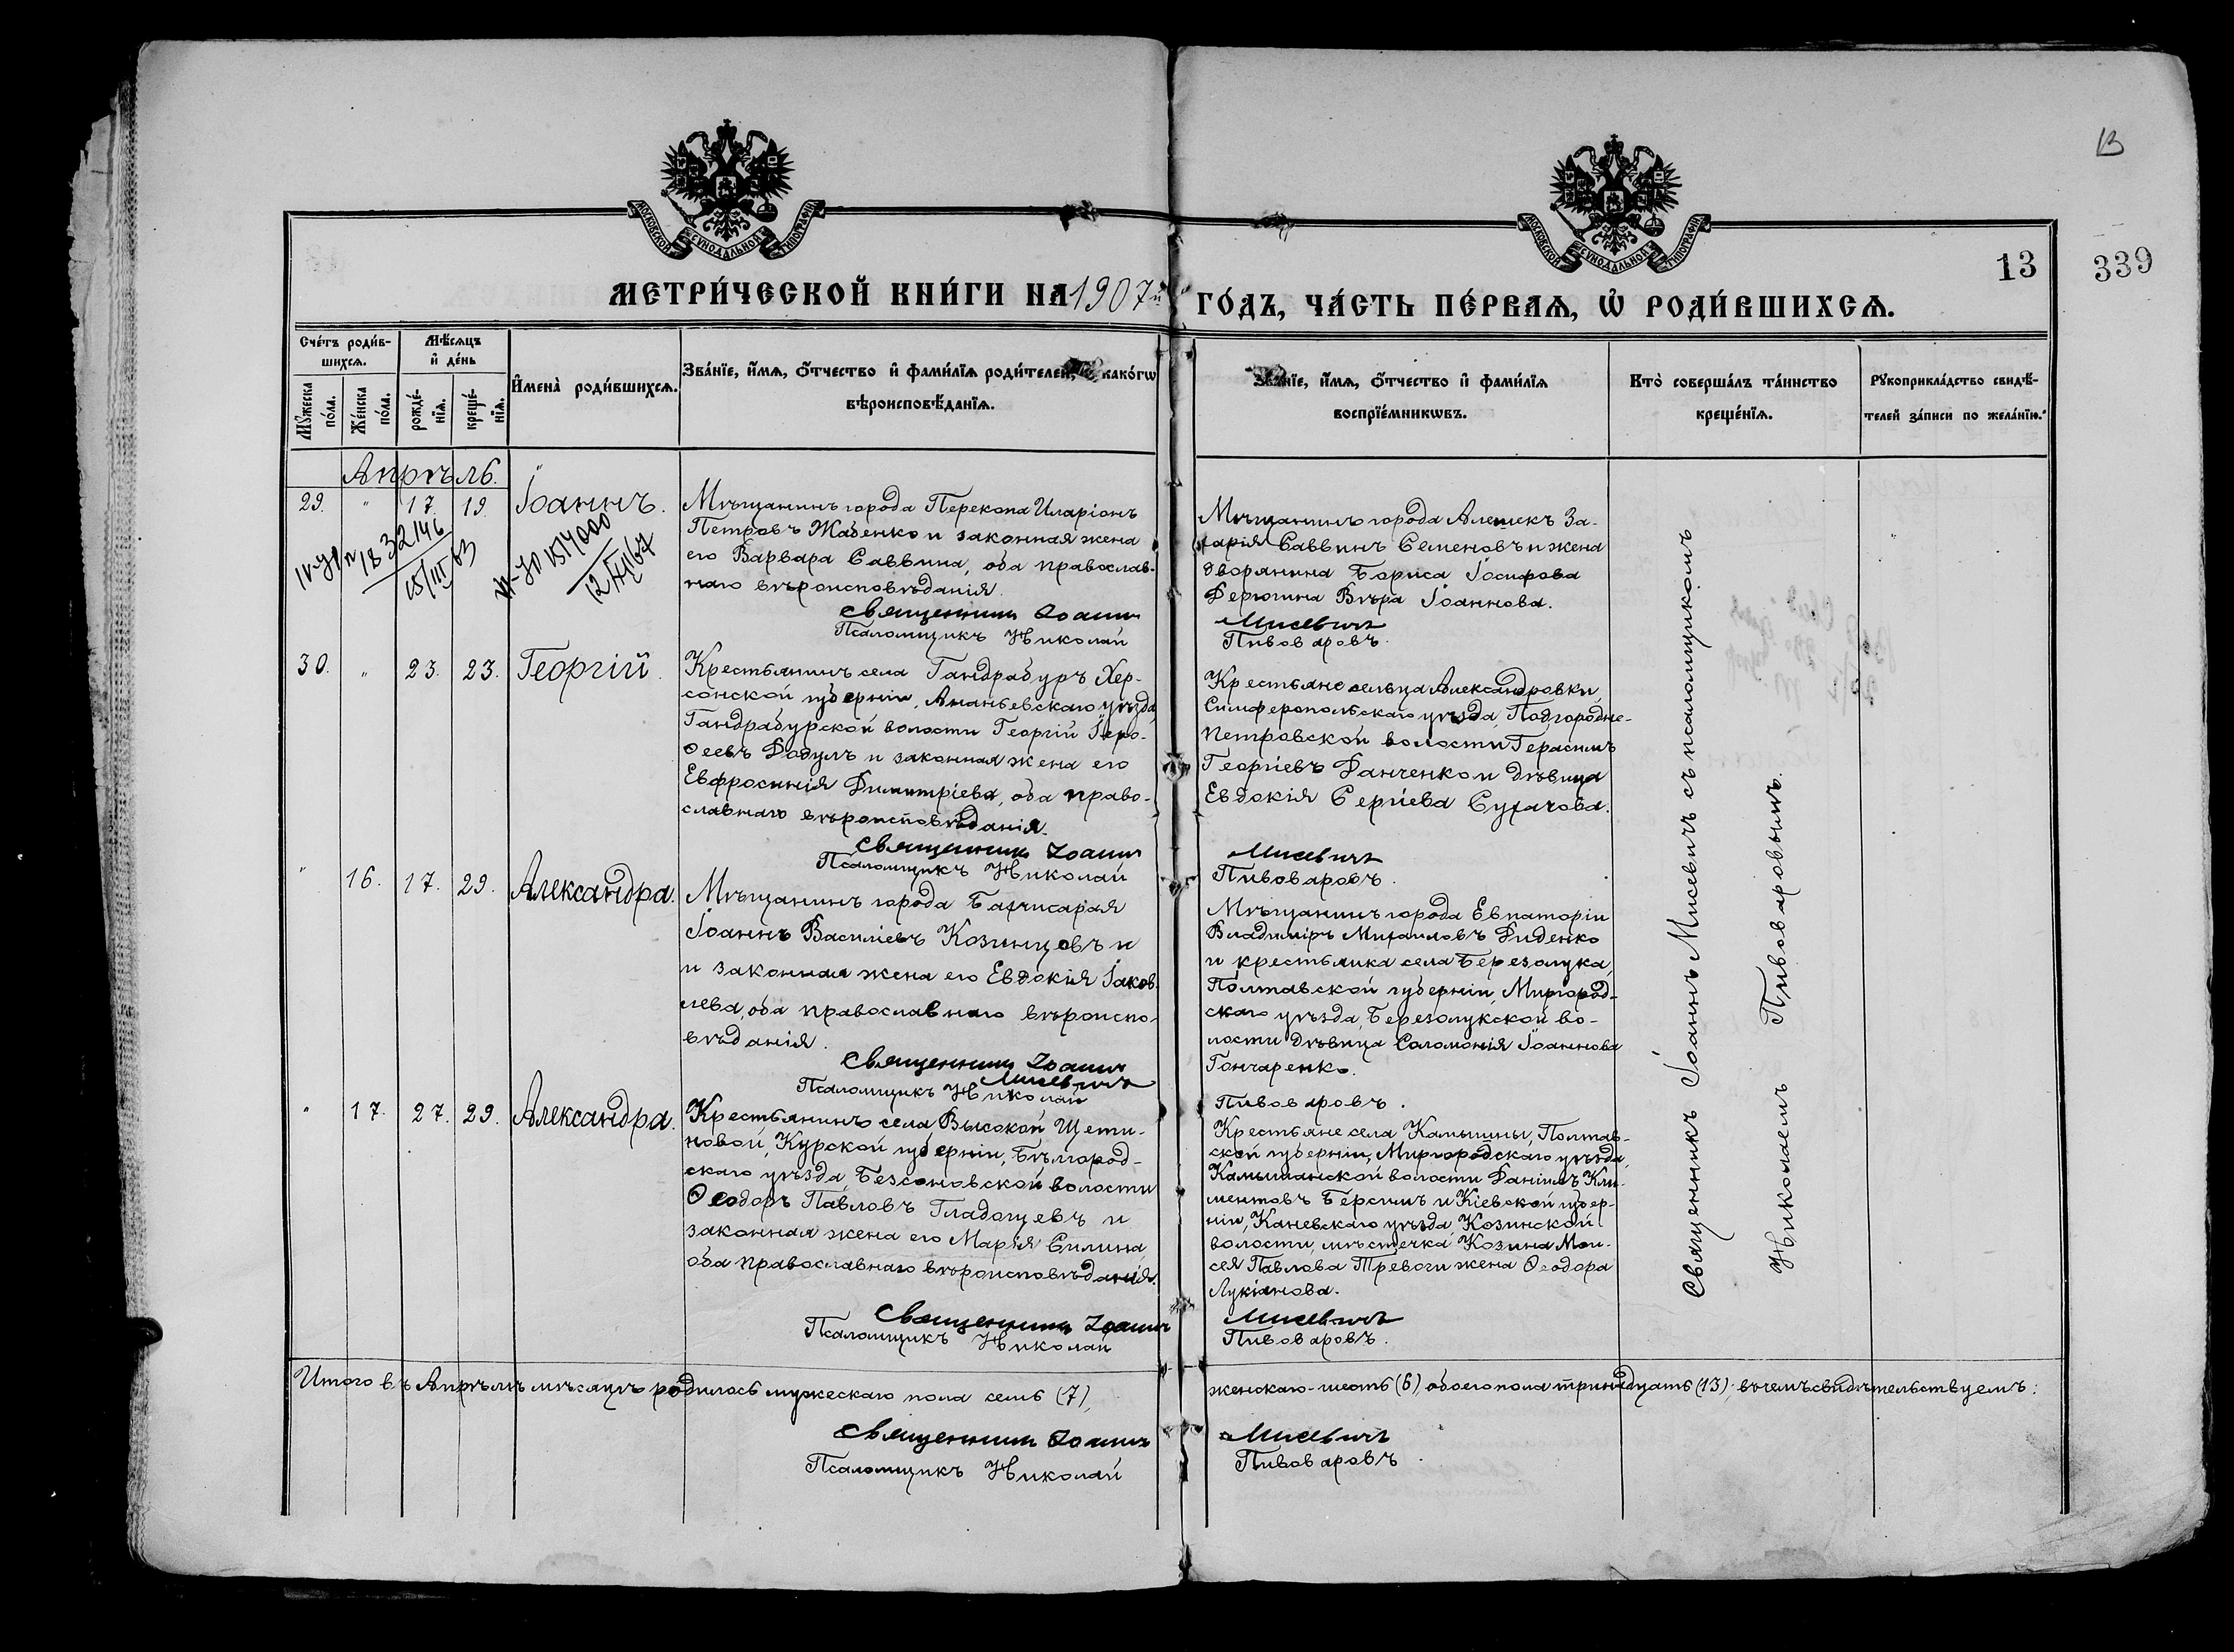 13
МОСКОВСКОЙ СУНОДАЛЬНОЙ ТИПОГРАФІИ
МОСКОВСКОЙ СУНОДАЛЬНОЙ ТИПОГРАФІИ
13
339
МЕТРИ́ЧЕСКОЙ КНИ́ГИ НА 1907й ГО́ДЪ, ЧА́СТЬ ПЕ́РВАѦ, Ѡ РОДИ́ВШИХСѦ.
Сче́тъ роди́в-
шихсѧ.
Мѣ́сѧцъ
и де́нь
Мꙋжеска
по́ла.
Же́нска
по́ла.
рожде́-
нїѧ.
креще́-
нїѧ.
Имена̀ роди́вшихсѧ.
Зва́нїе, и́мѧ, о́тчество и фами́лїѧ роди́телей, како́гѡ
вѣроисповѣ́данїѧ.
Зва́нїе, и́мѧ, о́тчество и фами́лїѧ
воспрїе́мникѡвъ.
Кто̀ соверша́лъ та́инство
креще́нїѧ.
Рꙋкоприкла́дство свидѣ́-
телей за́писи по жела́нїю.
Апрѣль.
29. " 17. 19. Іоаннъ.
Мѣщанинъ города Перекопа Иларіонъ
Петровъ Жабенко и законная жена
его Варвара Саввина, оба православ-
наго вѣроисповѣданія.
Священникъ Іоаннъ
Псаломщикъ Николай
Мѣщанинъ города Алешекъ За-
харія Саввинъ Семеновъ и жена
дворянина Бориса Іосифова
Дерюгина Вѣра Іоаннова.
Мисевичъ
Пивоваровъ.
1832146
15/III 63
ЯЮ 1514000
12/XII 67
30. " 23. 23. Георгій.
Крестьянинъ села Гандрабуръ Хер-
сонской губерніи, Ананьевскаго уѣзда,
Гандрабурской волости Георгій Іеро-
ѳеевъ Фодулъ и законная жена его
Евфросинія Димитріева, оба право-
славнаго вѣроисповѣданія.
Священникъ Іоаннъ
Псаломщикъ Николай
Крестьяне сельца Александровки,
Симферопольскаго уѣзда, Подгородне-
Петровской волости Герасимъ
Георгіевъ Данченко и дѣвица
Евдокія Сергіева Сухачова.
Мисевичъ
Пивоваровъ.
" 16. 17. 29. Александра.
Мѣщанинъ города Бахчисарая
Іоаннъ Василіевъ Козинцовъ и
и законная жена его Евдокія Іаков-
лева, оба православнаго вѣроиспо-
вѣданія.
Священникъ Іоаннъ
Мисевичъ
Псаломщикъ Николай
Мѣщанинъ города Евпаторіи
Владиміръ Михаиловъ Диденко
и крестьянка села Березолука,
Полтавской губерніи, Миргород-
скаго уѣзда, Березолукской во-
лости дѣвица Соломонія Іоаннова
Гончаренко.
Пивоваровъ.
" 17. 27. 29. Александра.
Крестьянинъ села Высокой, Щети-
новой, Курской губерніи, Бѣлгород-
скаго уѣзда, Безсоновской волости
Ѳеодоръ Павловъ Гладопцевъ и
законная жена его Марія Силина,
оба православнаго вѣроисповѣданія.
Священникъ Іоаннъ
Псаломщикъ Николай
Крестьяне села Камышны, Полтав-
ской губерніи, Миргородскаго уѣзда,
Камышанской волости Даніилъ Кли-
ментовъ Берсимъ и Кіевской губер-
ніи, Каневскаго уѣзда, Козинской
волости, мѣстечка Козина Мои-
сея Павлова Тревоги жена Ѳеодора
Лукіанова.
Мисевичъ
Пивоваровъ.
Священникъ Іоаннъ Мисевичъ съ псаломщикомъ
Николаемъ Пивоваровымъ.
Итого въ Апрѣлѣ мѣсяцѣ родилось мужескаго пола семь (7), женскаго-шесть (6), обоего пола тринадцать (13); въ чемъ свидѣтельствуемъ:
Священникъ Іоаннъ Мисевичъ
Псаломщикъ Николай Пивоваровъ.